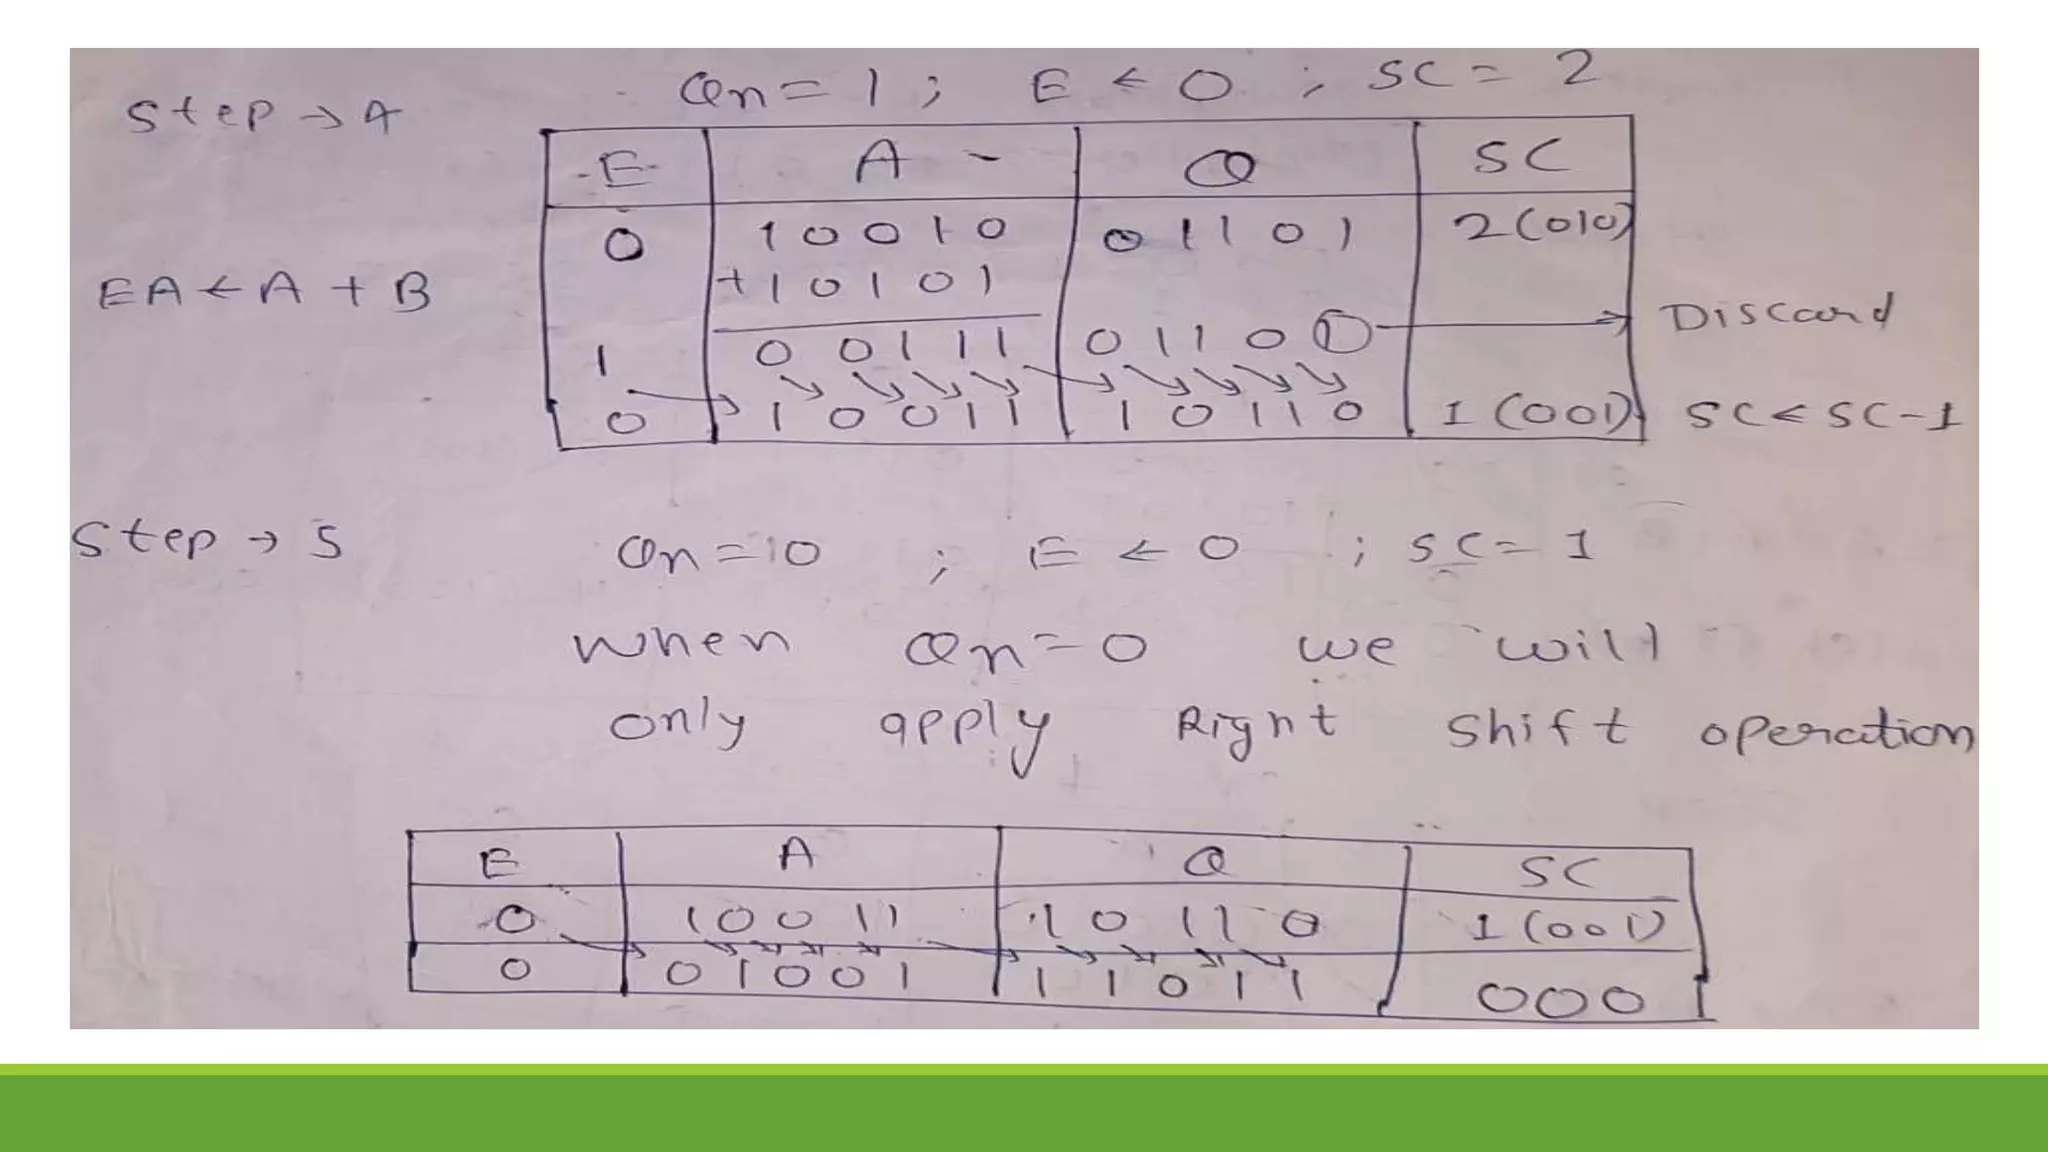 Step → 4 Qn = 1 ; E ← 0 ; SC = 2
E A Q SC
0 10010 01101 2(010)
EA ← A + B +10101
1 00111 01101 → Discard
0 10011 10110 1(001) SC ← SC-1
Step → 5 Qn = 0 ; E ← 0 ; SC = 1
When Qn = 0 we will
only apply Right Shift operation
E A Q SC
0 10011 10110 1(001)
0 01001 11011 000